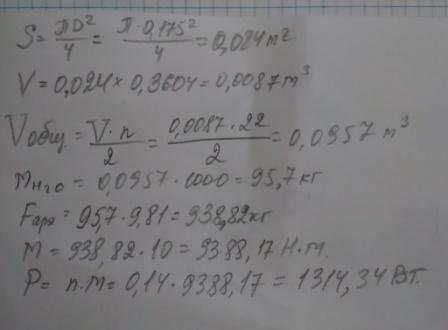 S = πD²/4 = π·0,175²/4 = 0,024 м²
V = 0,024 × 0,3604 = 0,0087 м³
Vобщ. = V·n/2 = 0,0087·22/2 = 0,0957 м³
mнго = 0,0957·1000 = 95,7 кг
Fарх = 95,7·9,81 = 938,82 кг
M = 938,82·10 = 9388,17 Н·м.
P = n·M = 0,14·9388,17 = 1314,34 Вт.